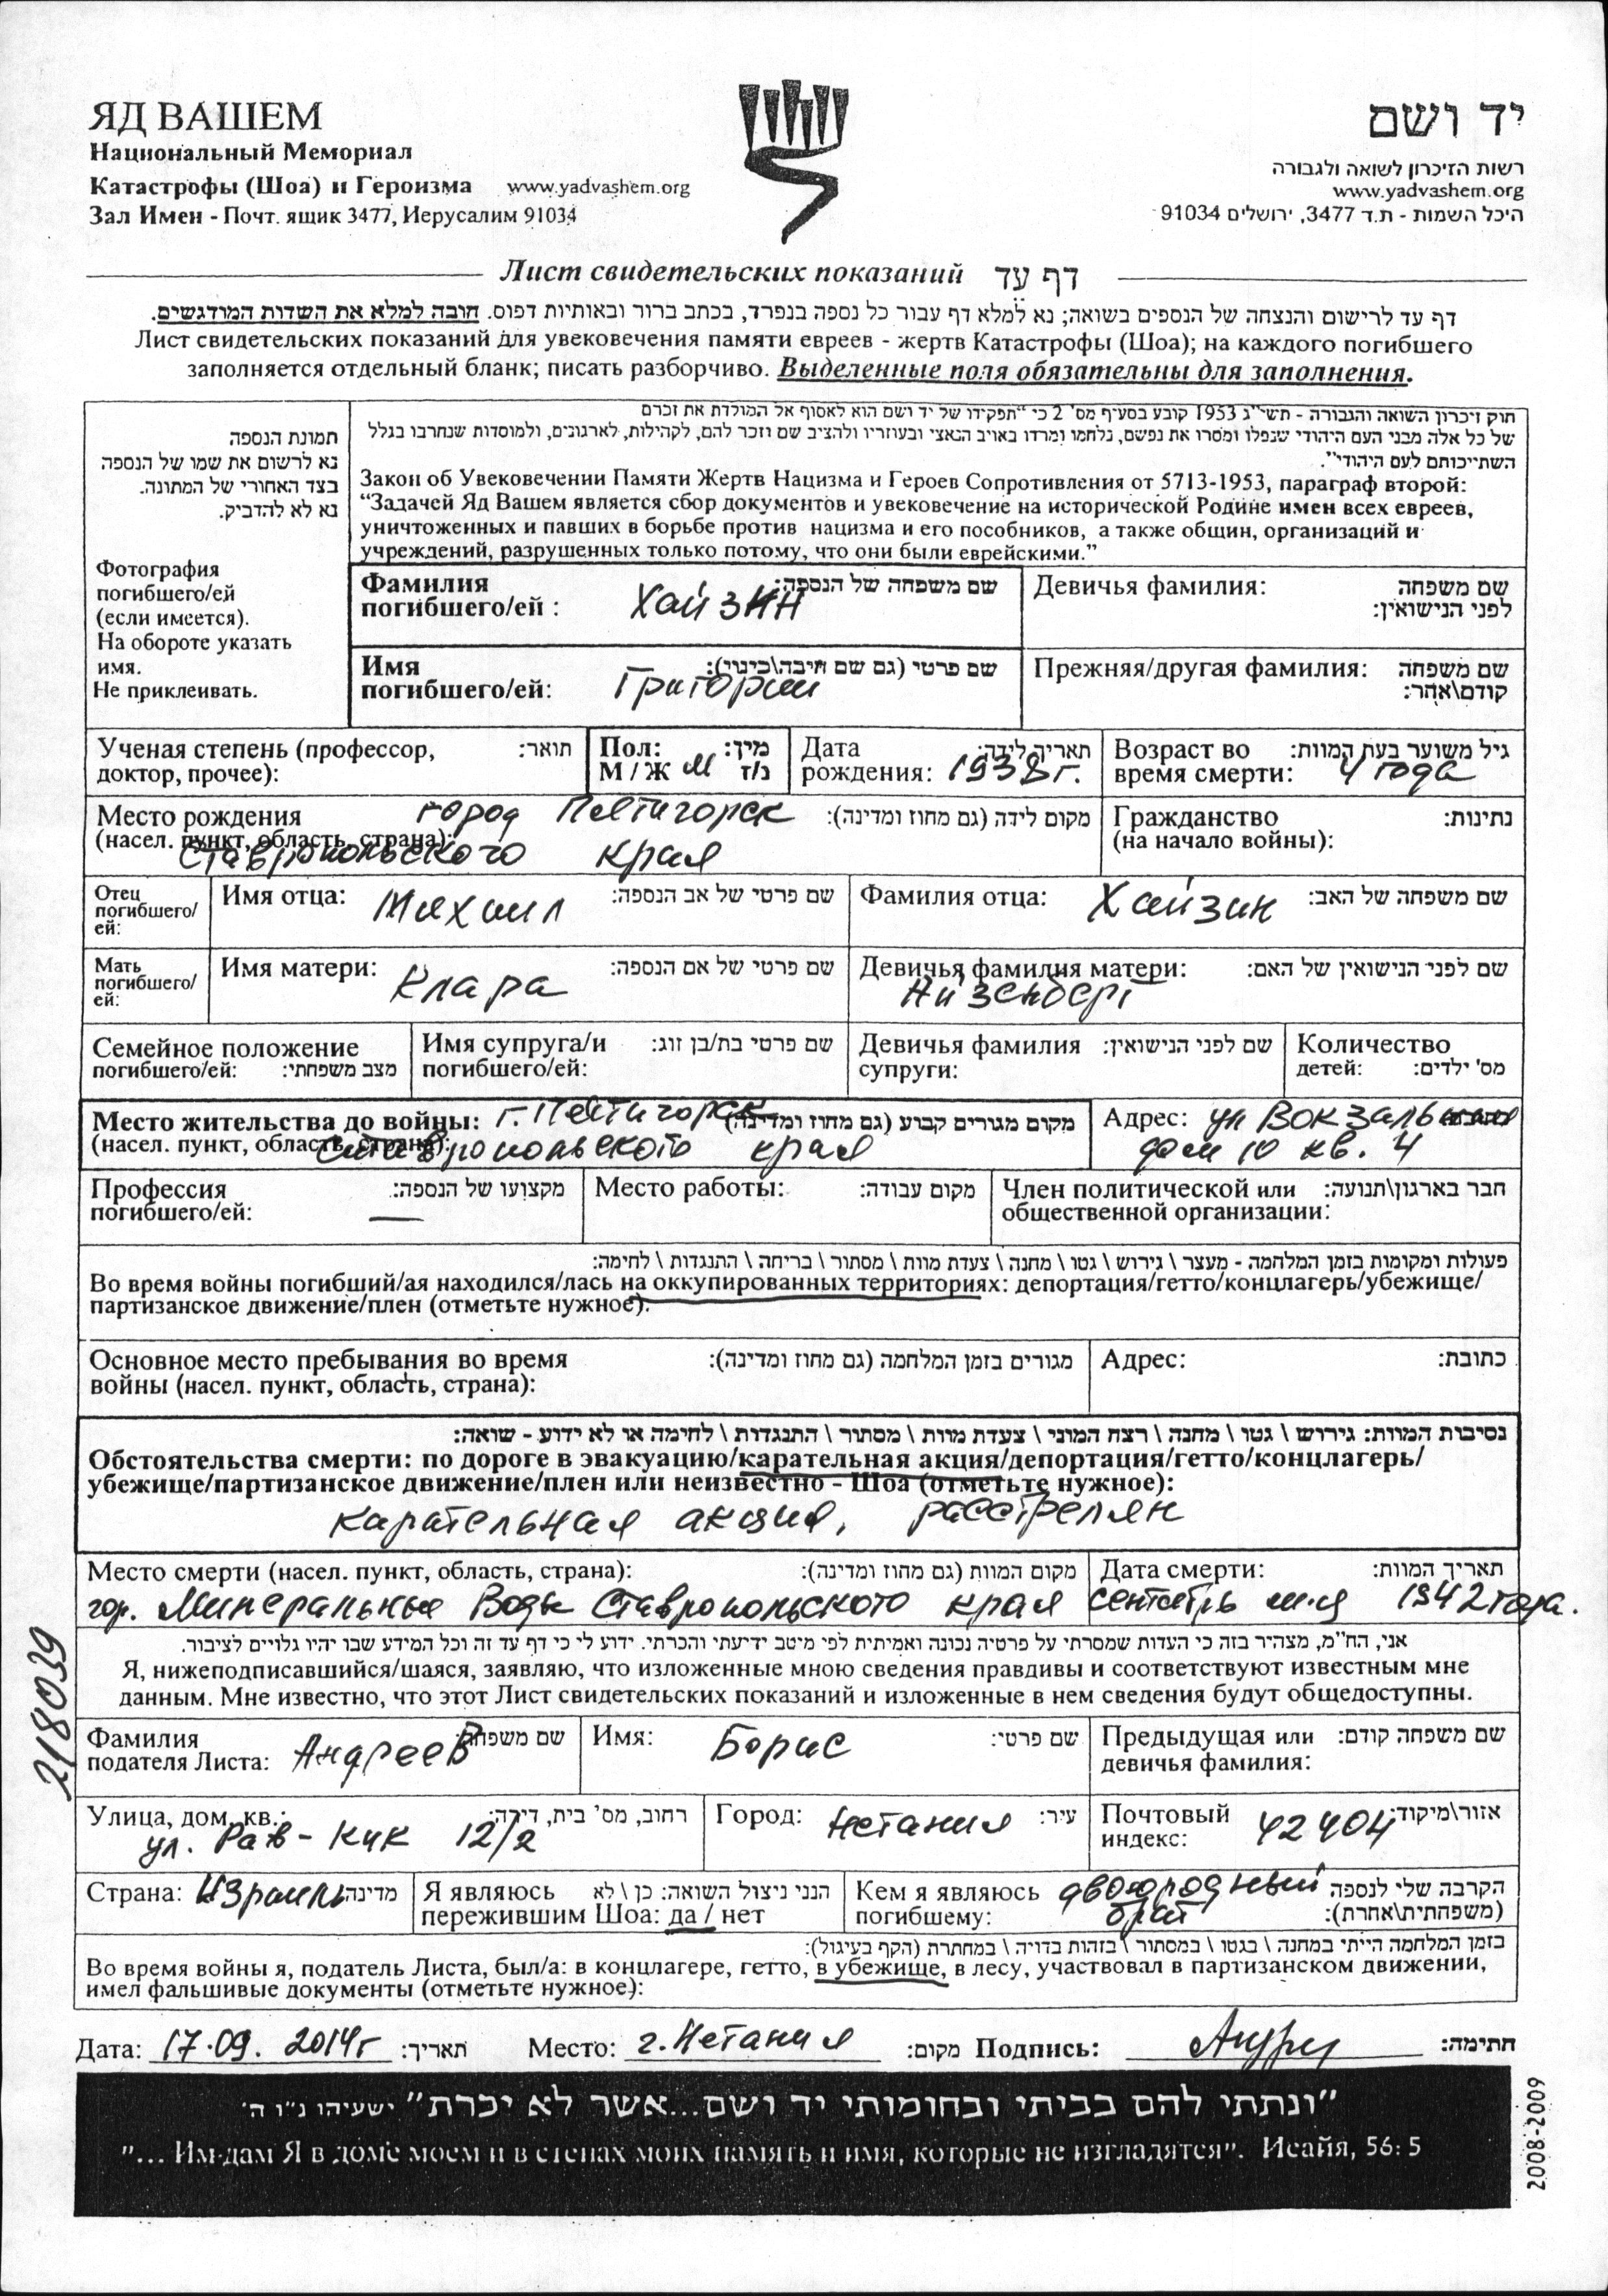 ЯД ВАШЕМ
Национальный Мемориал
Катастрофы (Шоа) и Героизма www.yadvashem.org
Зал Имен - Почт. ящик 3477, Иерусалим 91034
יד ושם
רשות הזיכרון לשואה ולגבורה
www.yadvashem.org
היכל השמות - ת.ד 3477, ירושלים 91034
Лист свидетельских показаний דף עד
דף עד לרישום והנצחה של הנספים בשואה; נא למלא דף עבור כל נספה בנפרד, בכתב ברור ובאותיות דפוס. חובה למלא את השדות המודגשים.
Лист свидетельских показаний для увековечения памяти евреев - жертв Катастрофы (Шоа); на каждого погибшего
заполняется отдельный бланк; писать разборчиво. Выделенные поля обязательны для заполнения.
תמונת הנספה
נא לרשום את שמו של הנספה
בצד האחורי של המתונה.
נא לא להדביק.
Фотография
погибшего/ей
(если имеется).
На обороте указать
имя.
Не приклеивать.
חוק זיכרון השואה והגבורה - תשי"ג 1953 קובע בסעיף מס' 2 כי "תפקידו של יד ושם הוא לאסוף אל המולדת את זכרם
של כל אלה מבני העם היהודי שנפלו ומסרו את נפשם, נלחמו ומרדו באויב הנאצי ובעוזריו ולהציב שם וזכר להם, לקהילות, לארגונים, ולמוסדות שנחרבו בגלל
השתייכותם לעם היהודי".
Закон об Увековечении Памяти Жертв Нацизма и Героев Сопротивления от 5713-1953, параграф второй:
“Задачей Яд Вашем является сбор документов и увековечение на исторической Родине имен всех евреев,
уничтоженных и павших в борьбе против нацизма и его пособников, а также общин, организаций и
учреждений, разрушенных только потому, что они были еврейскими.”
Фамилия שם משפחה של הנספה:
погибшего/ей : Хайзин
Девичья фамилия: שם משפחה
לפני הנישואין:
Имя שם פרטי (גם שם חיבה\כינוי):
погибшего/ей: Григорий
Прежняя/другая фамилия: שם משפחה
קודם\אחר:
Ученая степень (профессор, תואר:
доктор, прочее):
Пол: מין:
М / Ж м ז/נ
Дата תאריך לידה:
рождения: 1938г.
Возраст во גיל משוער בעת המוות:
время смерти: 4 года
Место рождения город Пятигорск מקום לידה (גם מחוז ומדינה):
(насел. пункт, область, страна):
Ставропольского края
Гражданство נתינות:
(на начало войны):
Отец
погибшего/
ей:
Имя отца: Михаил שם פרטי של אב הנספה:
Фамилия отца: Хайзин שם משפחה של האב:
Мать
погибшего/
ей:
Имя матери: Клара שם פרטי של אם הנספה:
Девичья фамилия матери: שם לפני הנישואין של האם:
Айзенберг
Семейное положение
погибшего/ей: מצב משפחתי:
Имя супруга/и שם פרטי בת/בן זוג:
погибшего/ей:
Девичья фамилия שם לפני הנישואין:
супруги:
Количество
детей: מס' ילדים:
Место жительства до войны: г. Пятигорск מקום מגורים קבוע (גם מחוז ומדינה):
(насел. пункт, область, страна):
Ставропольского края
Адрес: ул Вокзальная
дом 10 кв. 4
Профессия מקצועו של הנספה:
погибшего/ей: —
Место работы: מקום עבודה:
Член политической или חבר בארגון\תנועה:
общественной организации:
פעולות ומקומות בזמן המלחמה - מעצר \ גירוש \ גטו \ מחנה \ צעדת מוות \ מסתור \ בריחה \ התנגדות \ לחימה:
Во время войны погибший/ая находился/лась на оккупированных территориях: депортация/гетто/концлагерь/убежище/
партизанское движение/плен (отметьте нужное):
Основное место пребывания во время מגורים בזמן המלחמה (גם מחוז ומדינה):
войны (насел. пункт, область, страна):
Адрес: כתובת:
נסיבות המוות: גירוש \ גטו \ מחנה \ רצח המוני \ צעדת מוות \ מסתור \ התנגדות \ לחימה או לא ידוע - שואה:
Обстоятельства смерти: по дороге в эвакуацию/карательная акция/депортация/гетто/концлагерь/
убежище/партизанское движение/плен или неизвестно - Шоа (отметьте нужное):
карательная акция, расстрелян
Место смерти (насел. пункт, область, страна): מקום המוות (גם מחוז ומדינה):
гор. Минеральные Воды Ставропольского края
Дата смерти: תאריך המוות:
сентябрь м-ц 1942 года.
אני, הח"מ, מצהיר בזה כי העדות שמסרתי על פרטיה נכונה ואמיתית לפי מיטב ידיעתי והכרתי. ידוע לי כי דף עד זה וכל המידע שבו יהיו גלויים לציבור.
Я, нижеподписавшийся/шаяся, заявляю, что изложенные мною сведения правдивы и соответствуют известным мне
данным. Мне известно, что этот Лист свидетельских показаний и изложенные в нем сведения будут общедоступны.
218039
Фамилия שם משפחה:
подателя Листа: Андреев
Имя: Борис שם פרטי:
Предыдущая или שם משפחה קודם:
девичья фамилия:
Улица, дом, кв.: רחוב, מס' בית, דירה:
ул. Рав-Кук 12/2
Город: Нетания עיר:
Почтовый אזור\מיקוד:
индекс: 42404
Страна: Израиль מדינה:
Я являюсь הנני ניצול השואה: כן \ לא
пережившим Шоа: да / нет
Кем я являюсь двоюродный הקרבה שלי לנספה
погибшему: брат (משפחתית\אחרת):
בזמן המלחמה הייתי במחנה \ בגטו \ במסתור \ בזהות בדויה \ במחתרת (הקף בעיגול):
Во время войны я, податель Листа, был/а: в концлагере, гетто, в убежище, в лесу, участвовал в партизанском движении,
имел фальшивые документы (отметьте нужное):
Дата: 17.09. 2014г תאריך: Место: г. Нетания מקום: Подпись: חתימה:
"ונתתי להם בביתי ובחומותי יד ושם...אשר לא יכרת" ישעיהו נ"ו ה'
"... Им дам Я в доме моем и в стенах моих память и имя, которые не изгладятся". Исайя, 56: 5
2008-2009